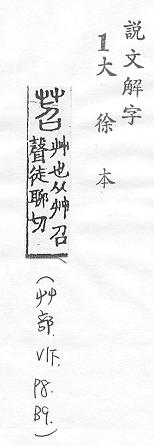 説文解字
1大徐本
苕
艸也从艸召
聲徒聊切
(艸部. V1下. P8. B9.)